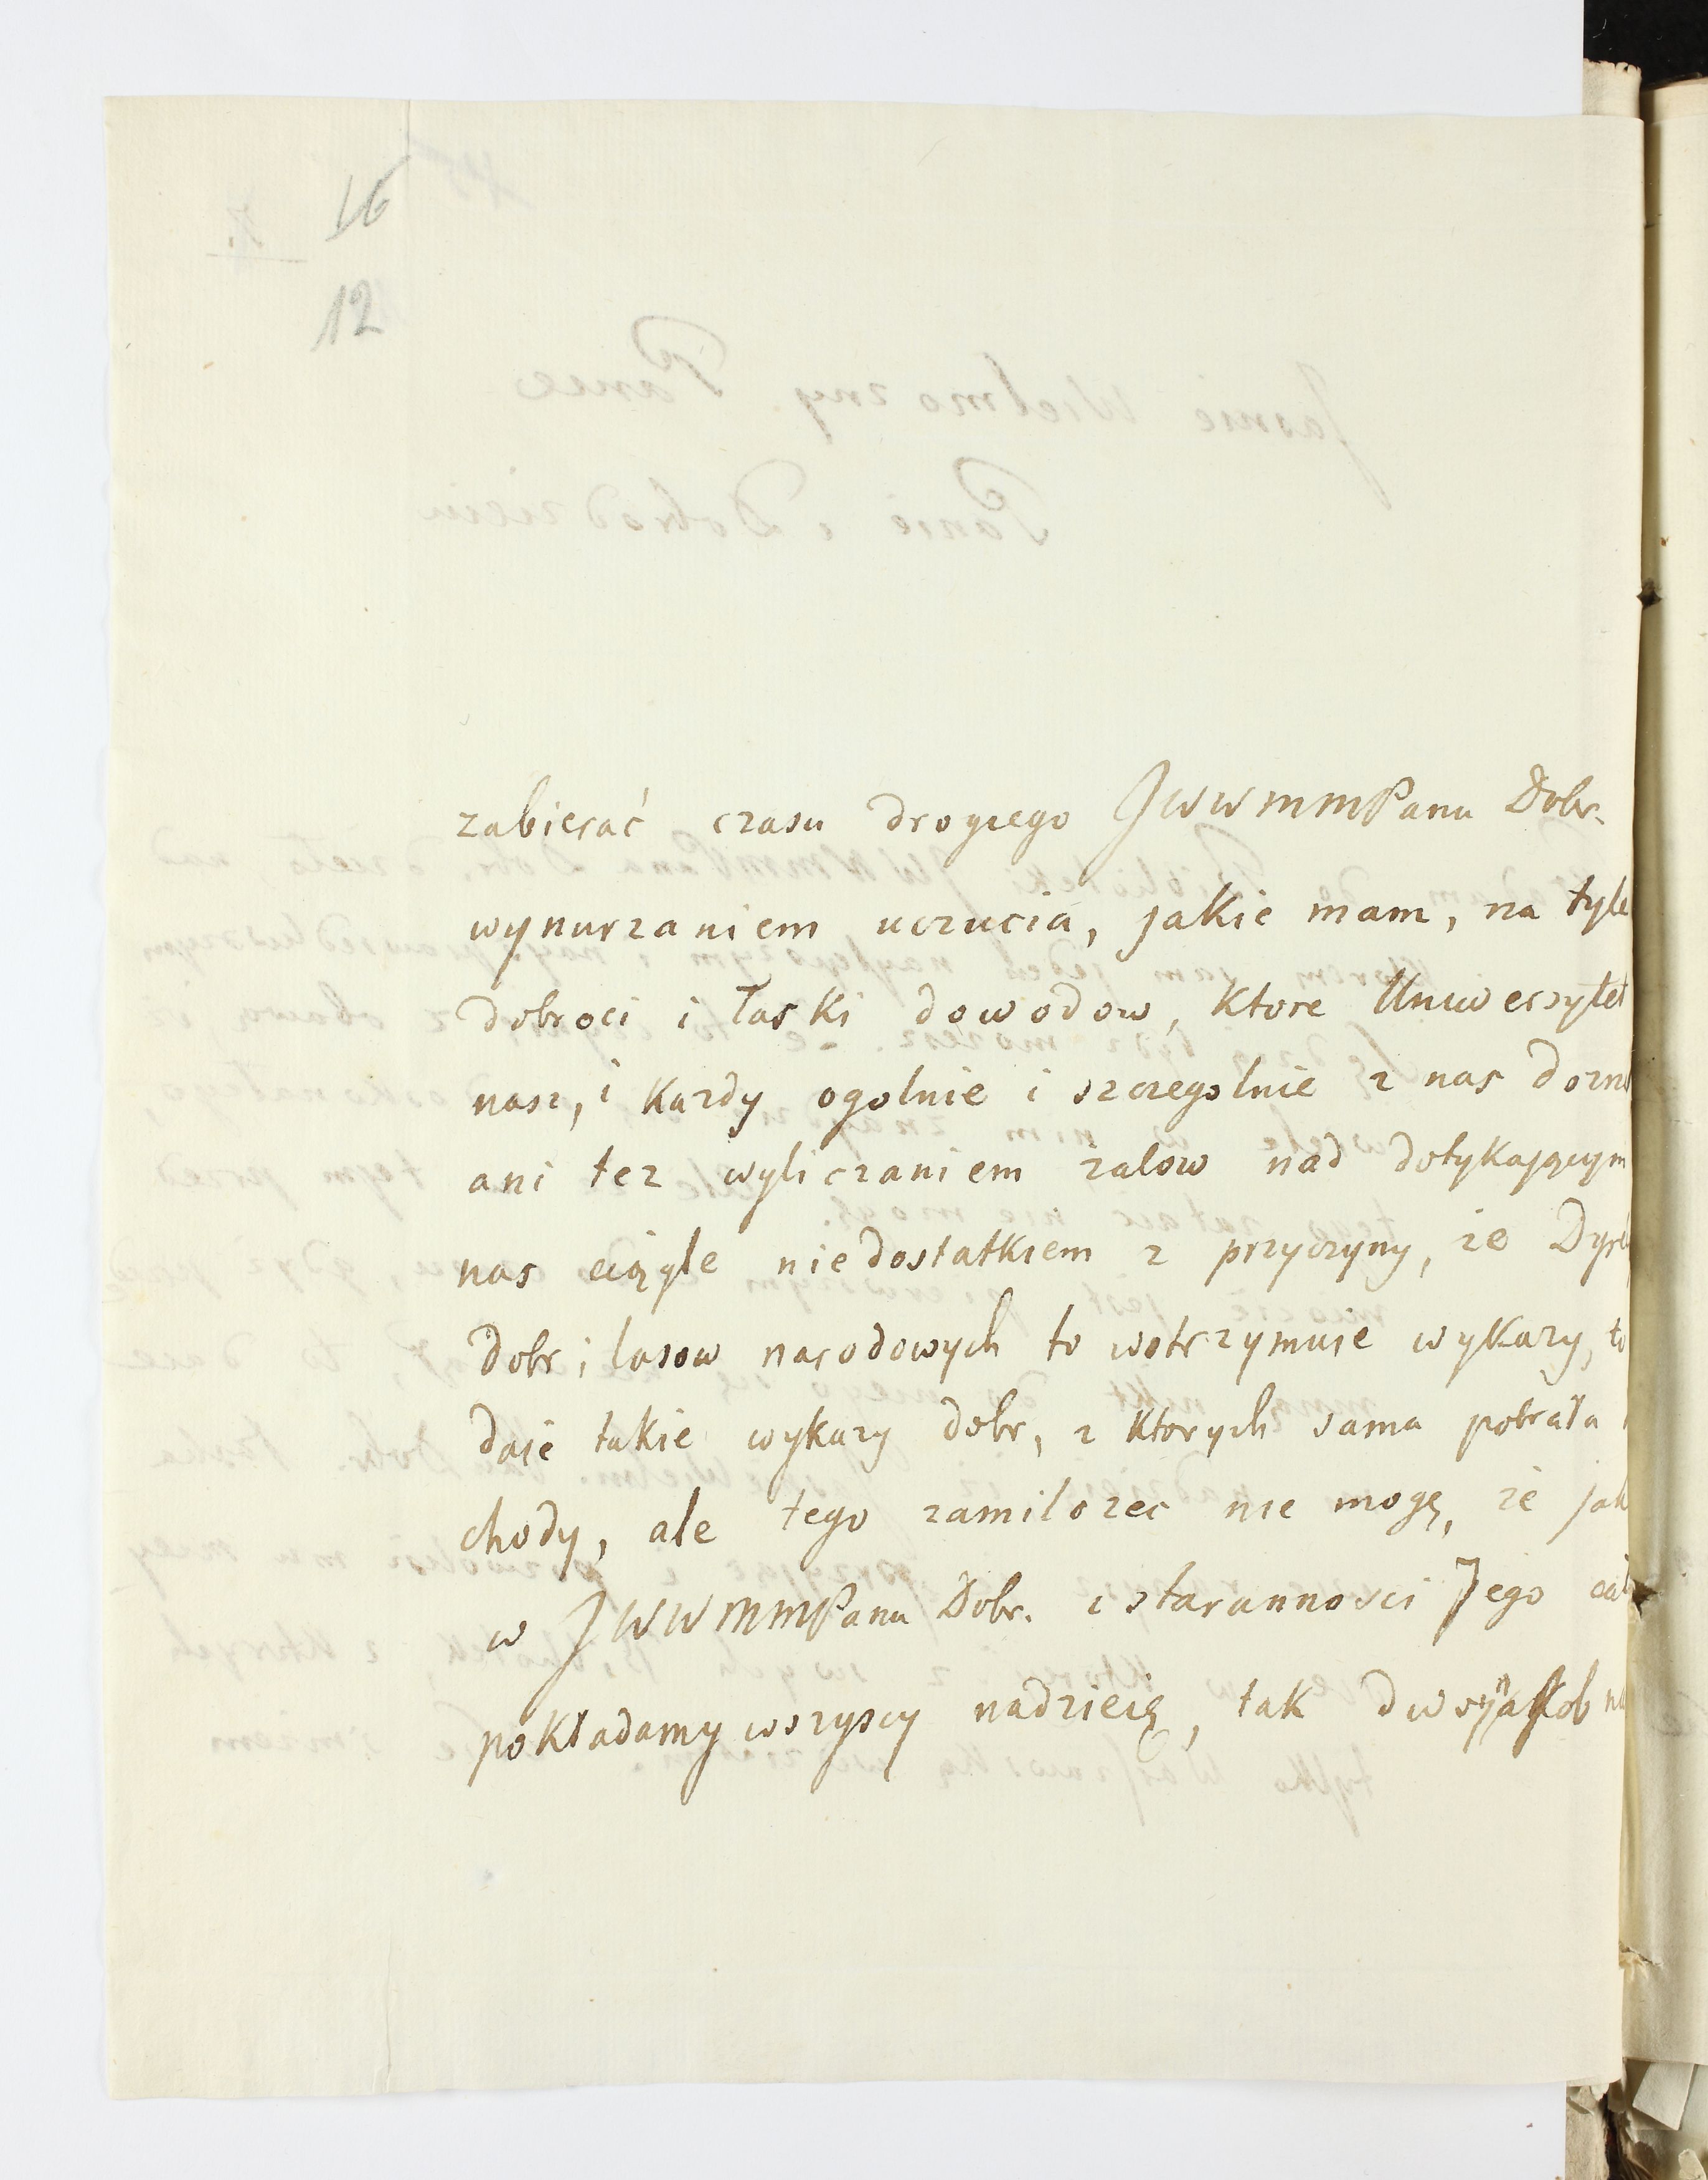 16
12
zabierać czasu drogiego JWWMMPanu Dobr.
wynurzaniem uczucia, jakie mam, na tyle
dobroci i łaski dowodow, ktore Uniwersytet
nasz, i kazdy ogolnie i szczegolnie z nas dozn
ani tez wyliczaniem zalow nad dotykającym
nas ciągle niedostatkiem z przyczyny, ze Dyre
dobr i lasow narodowych to wstrzymuie wykazy, to
daie takie wykazy dobr, z ktorych sama pobrała
chody, ale tego zamilczec nie mogę, ze jak
w JWWMMPanu Dobr. i starannosci Jego cał
pokładamy wszyscy nadzieię, tak